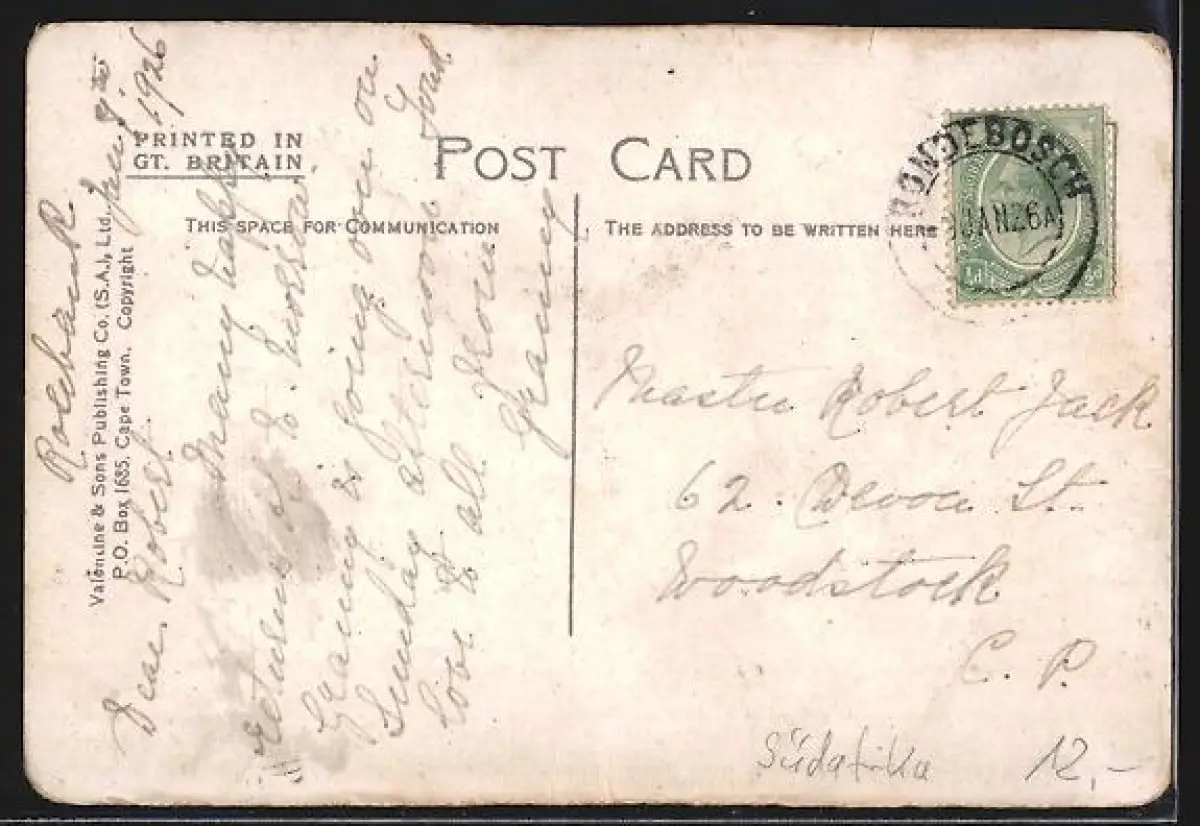 PRINTED IN
GT. BRITAIN
POST CARD
THIS SPACE FOR COMMUNICATION
THE ADDRESS TO BE WRITTEN HERE
Valentine & Sons Publishing Co. (S.A.), Ltd.
P.O. Box 1685, Cape Town. Copyright
RONDEBOSCH
JAN 26 A
½d
Rosebank
1926
Dear Robert
Many happy
returns of to-morrow
Granny is going over on
Sunday afternoon
Love to all from
Granny
Master Robert Jack
62. Devon St.
Woodstock
C. P.
Südafrika
12,-